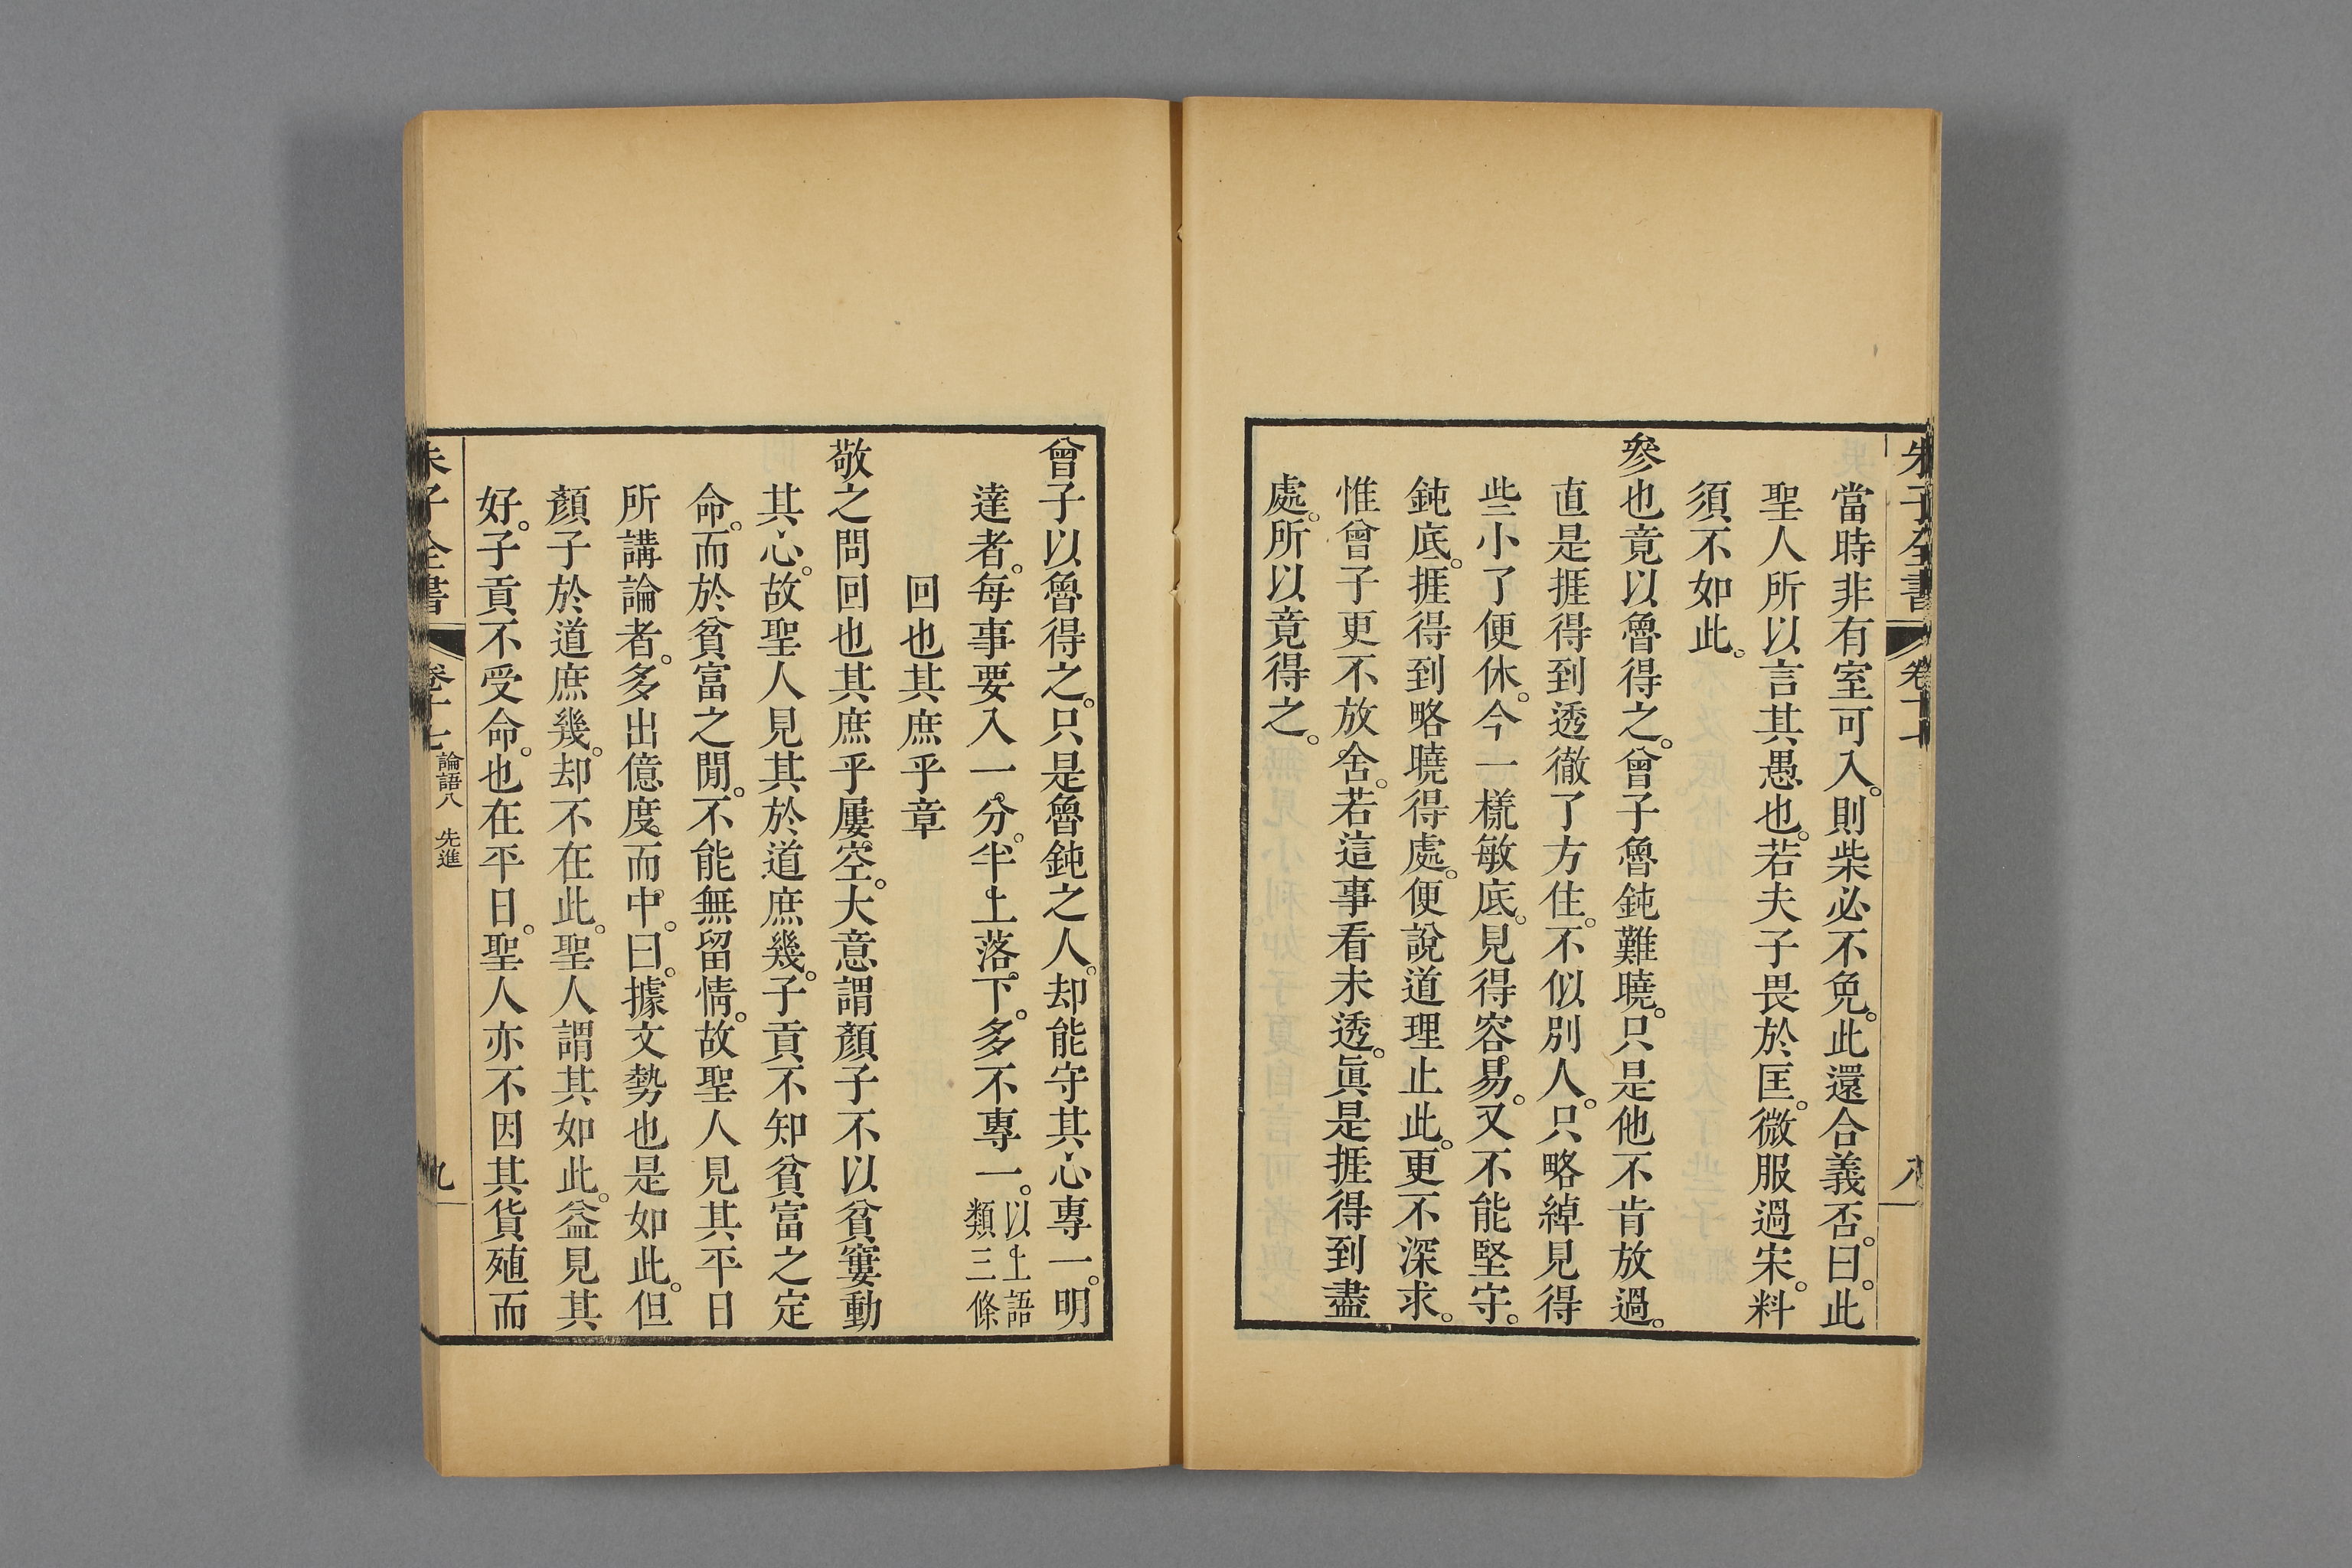 朱子全書 卷十七 八
當時非有室可入。則柴必不免。此還合義否。曰。此
聖人所以言其愚也。若夫子畏於匡。微服過宋。料
須不如此。
參也竟以魯得之。曾子魯鈍難曉。只是他不肯放過。
直是捱得到透徹了方住。不似別人。只略綽見得
些小了便休。今一樣敏底。見得容易。又不能堅守。
鈍底。捱得到略曉得處。便說道理止此。更不深求。
惟曾子更不放舍。若這事看未透。眞是捱得到盡
處。所以竟得之。
曾子以魯得之。只是魯鈍之人。却能守其心專一。明
達者。每事要入一分。半上落下。多不專一。以上語類三條
回也其庶乎章
敬之問回也其庶乎屢空。大意謂顏子不以貧窶動
其心。故聖人見其於道庶幾。子貢不知貧富之定
命。而於貧富之閒。不能無留情。故聖人見其平日
所講論者。多出億度而中。曰。據文勢也是如此。但
顏子於道庶幾。却不在此。聖人謂其如此。益見其
好。子貢不受命。也在平日。聖人亦不因其貨殖而
朱子全書 卷十七 論語八 先進 九